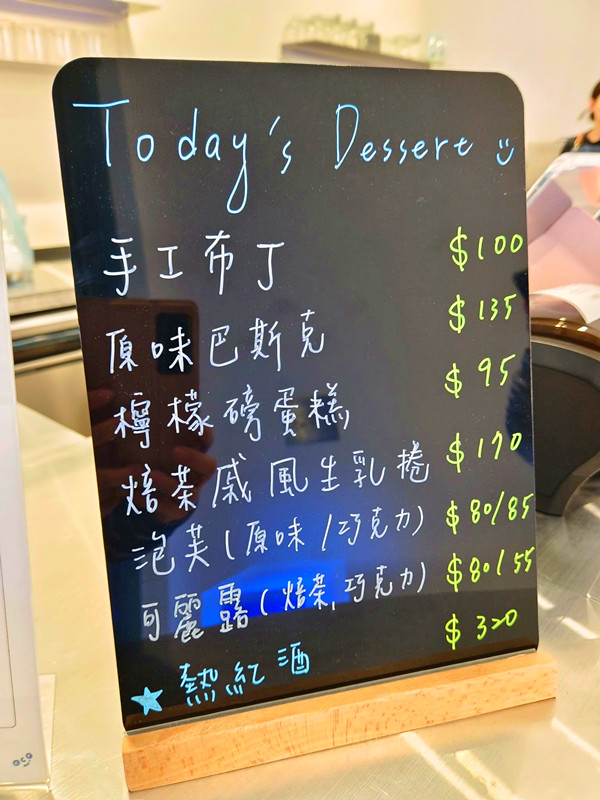 Today's Dessert
手工布丁 $100
原味巴斯克 $135
檸檬磅蛋糕 $95
焙茶戚風生乳捲 $170
泡芙(原味/巧克力) $80/85
可麗露(焙茶,巧克力) $80/55
★熱紅酒 $320